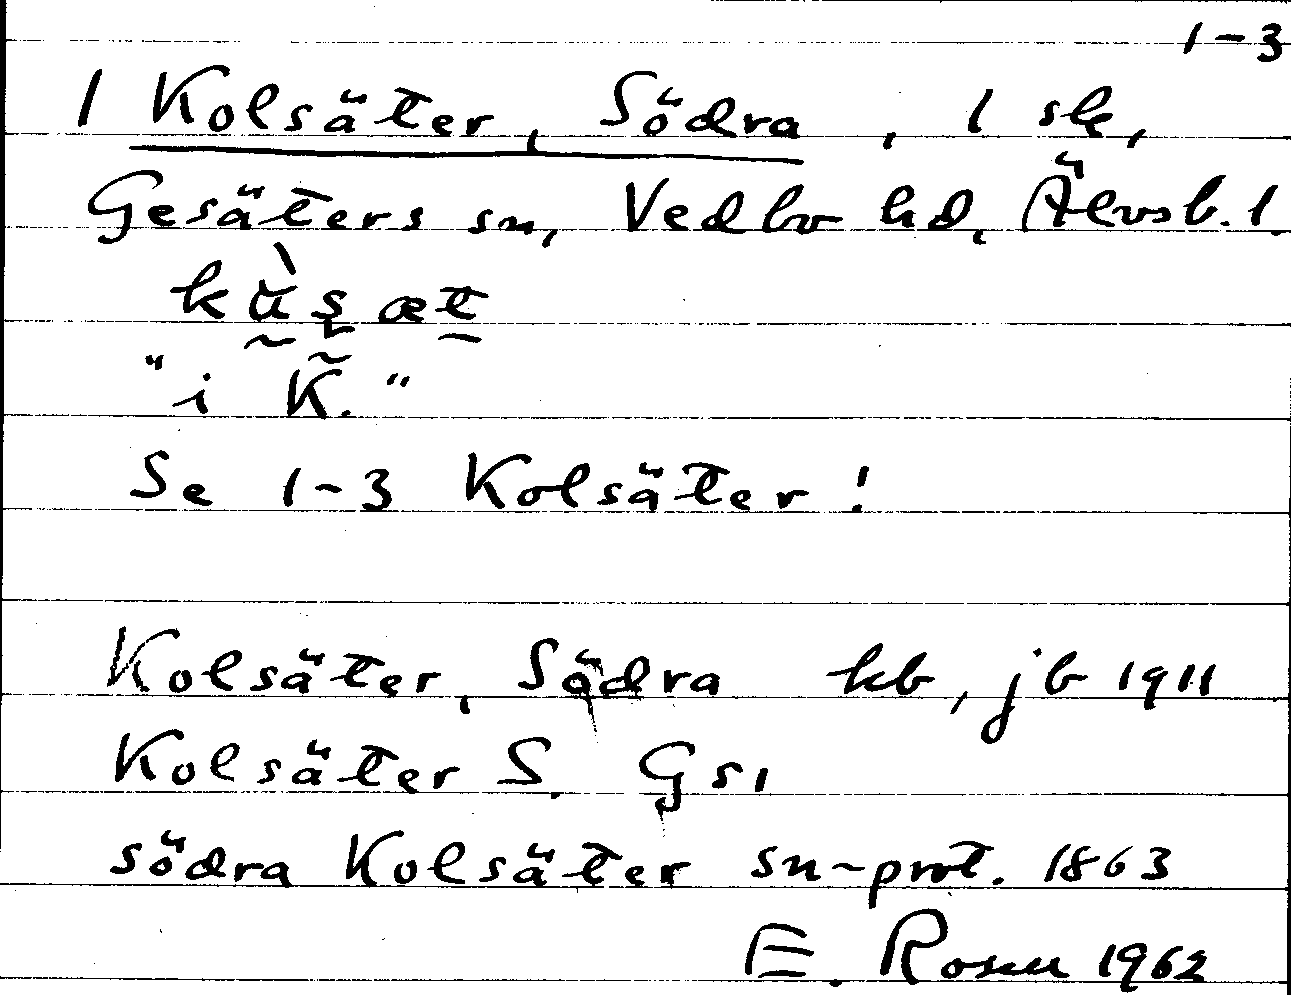 1-3
1 Kolsäter, Södra, 1 sk,
Gesäters sn, Vedbo hd, Älvsb. l.
"i K."
Se 1-3 Kolsäter!
Kolsäter, Södra kb, jb 1911
Kolsäter S. Gs1
södra Kolsäter sn-prot. 1863
E. Rosen 1962